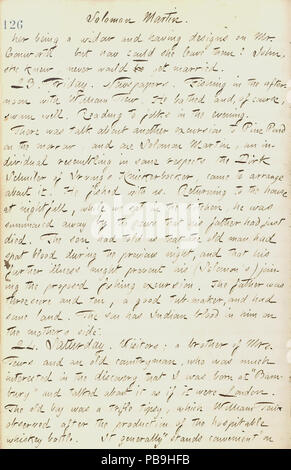 126
Solomon Martin.
her being a widow and having designs on Mr.
but how could she have them? John,
she knew, never would get married.
23. Friday. Newspapers. Fishing in the after-
noon with William Tew. He bathed and, of course,
swam well. Reading to folks in the evening.
There was talk about another excursion to Pine Pond
on the morrow and one Solomon Martin, an in-
dividual resembling in some respects the Dirk
Schuiler of Irving's Knickerbocker, came to arrange
about it. He fished with us. Returning to the house
at nightfall, while we sat at supper, he was
summoned away by the news that his father had just
died. The son had told us that the old man had
spat blood during the previous night, and that his
further illness might prevent his (Solomon's) join-
ing the proposed fishing excursion. The father was
threescore and ten, a good tub-maker, and had
some land. The son has Indian blood in him on
the mother's side.
24. Saturday. Visitors: a brother of Mrs.
Tew's and an old countryman, who was much
interested in the discovery that I was born at "Bam-
bury" and talked about it as if it were London.
The old boy was a trifle tipsy, which William Tew
observed after the production of the hospitable
whiskey bottle. It generally stands convenient on
alamy
Image ID: PB9HFB
www.alamy.com